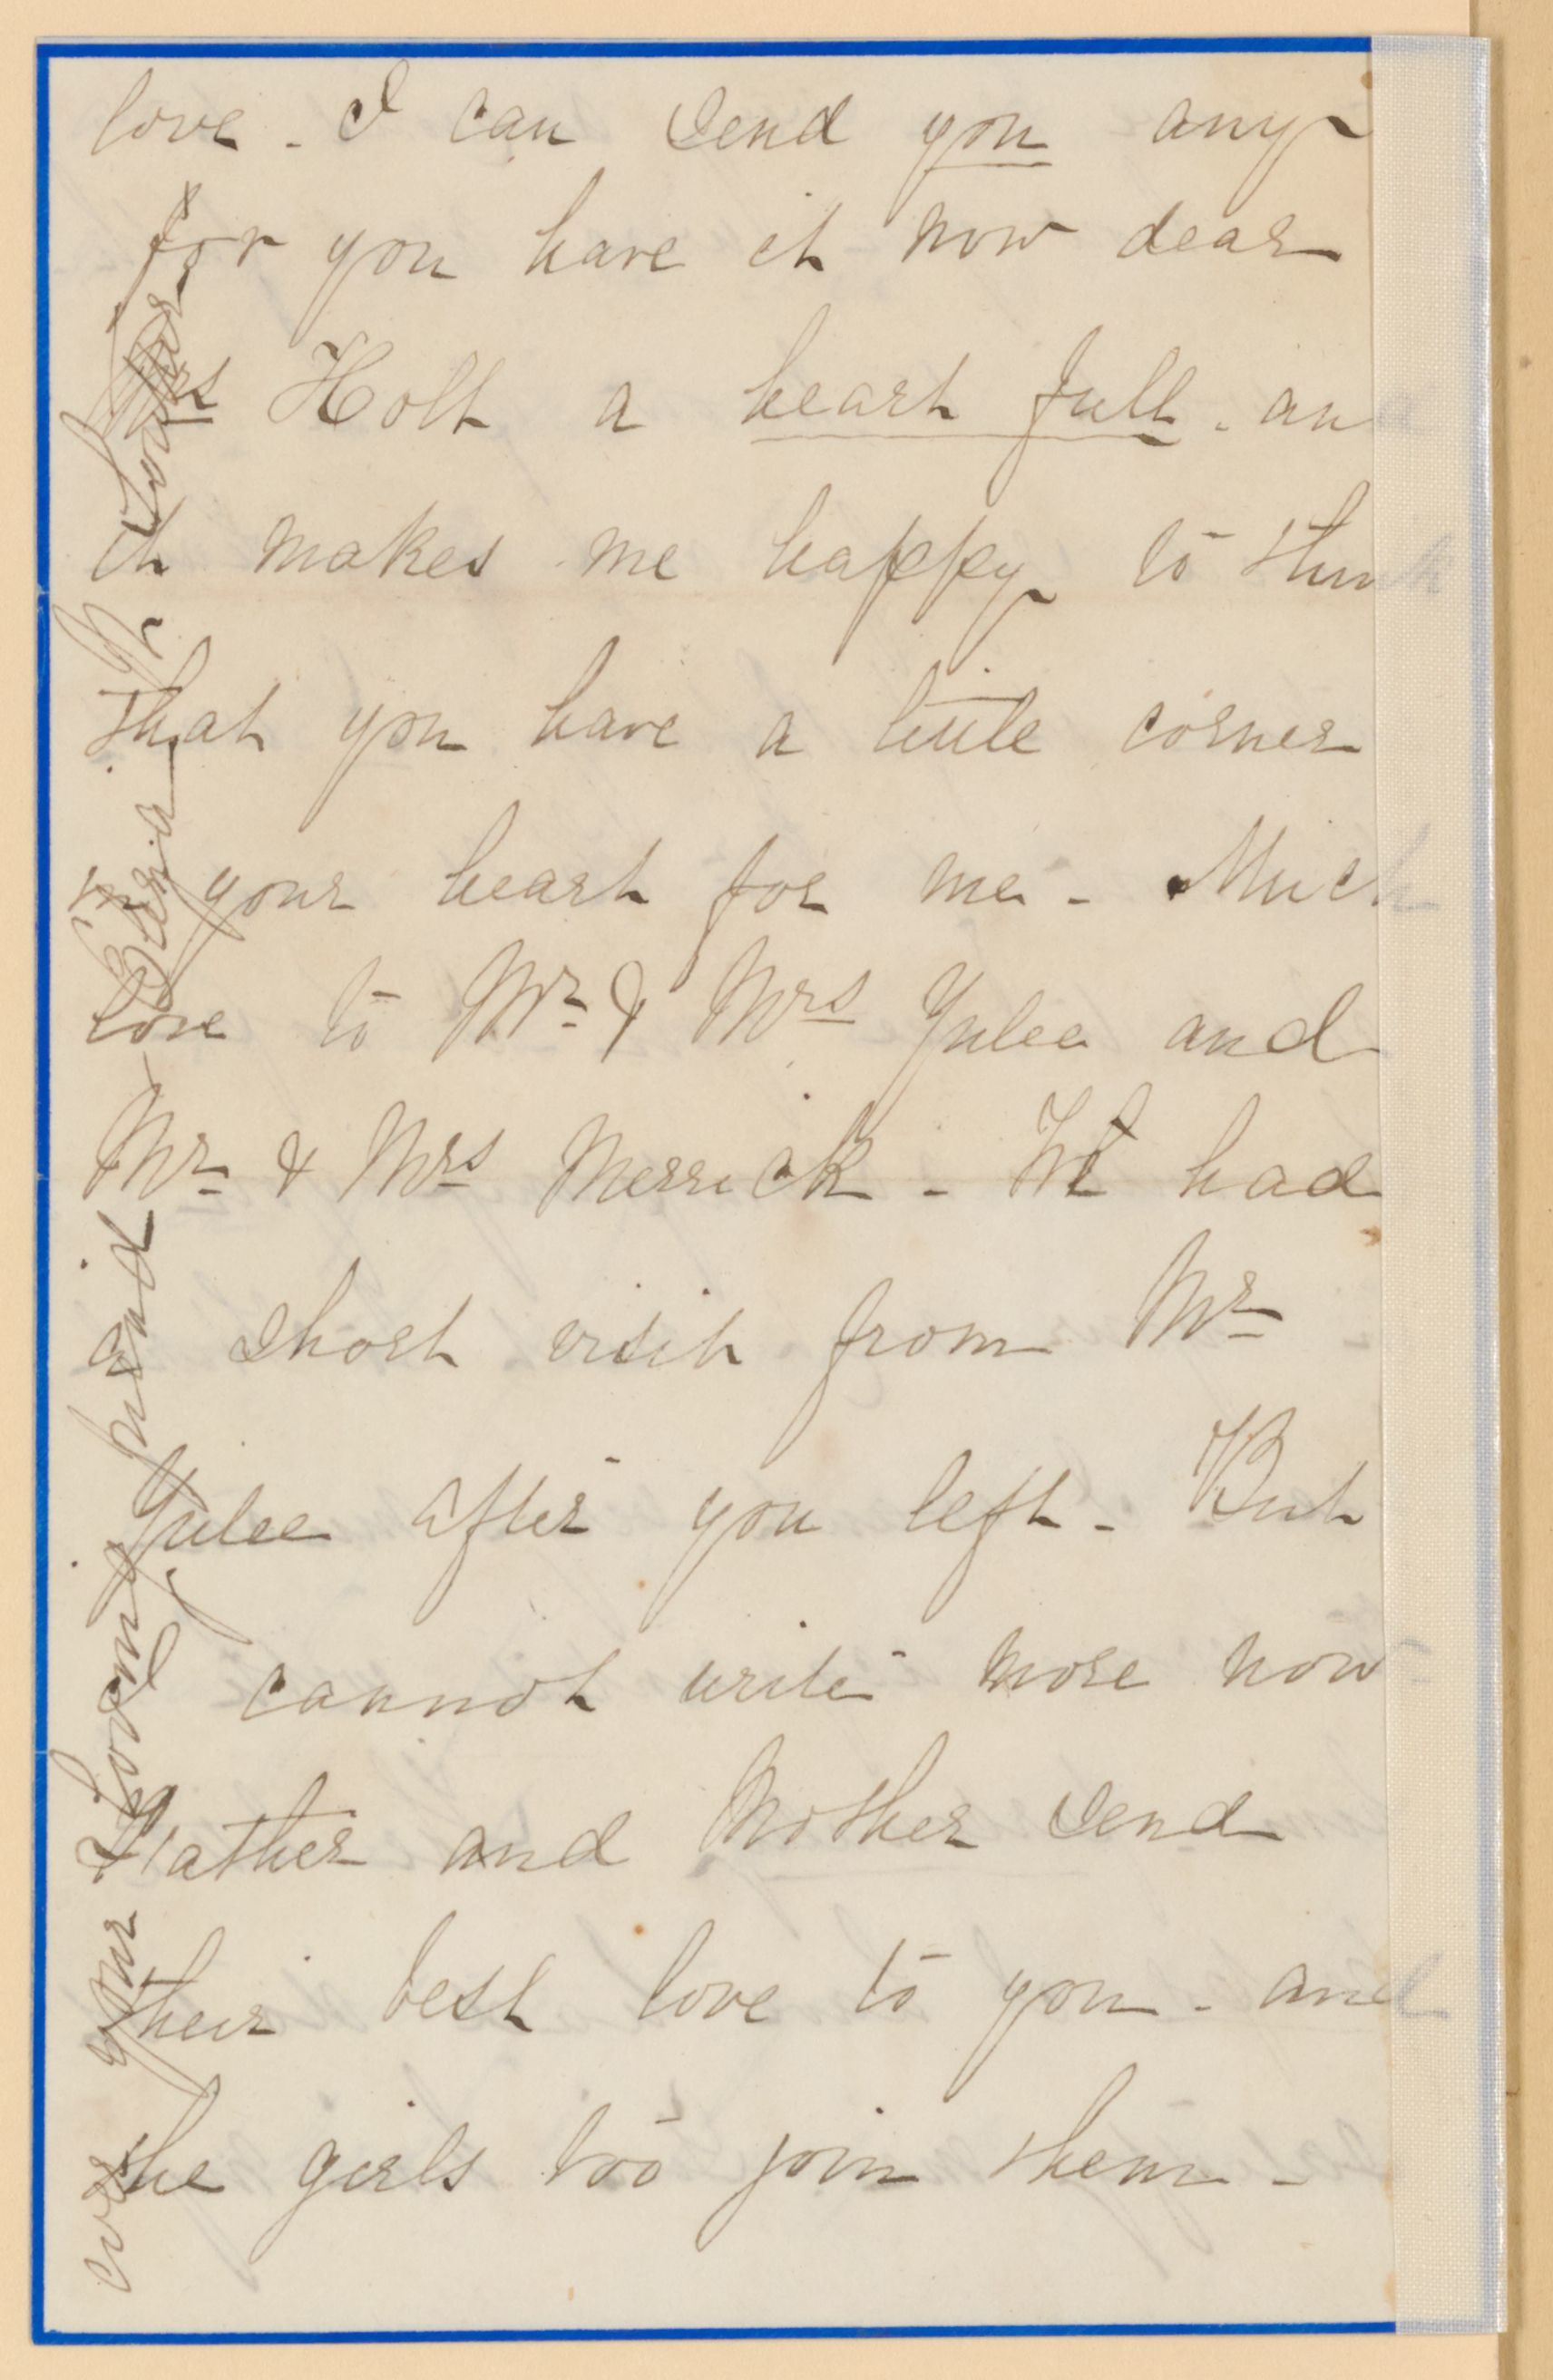 love - I can send you any
for you have it now dear
Mrs Holt a heart full - and
it makes me happy to think
that you have a little corner
in your heart for me - Much
love to Mr & Mrs Yulee and
Mr & Mrs Merrick - We had
a short visit from Mr
Yulee after you left - But
I cannot write more now
Father and Mother send
their best love to you - and
the girls too join them -
ever your loving friend